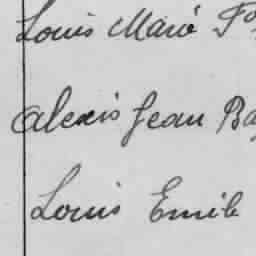 Louis Marié
Alexis Jean Ba
Louis Emile